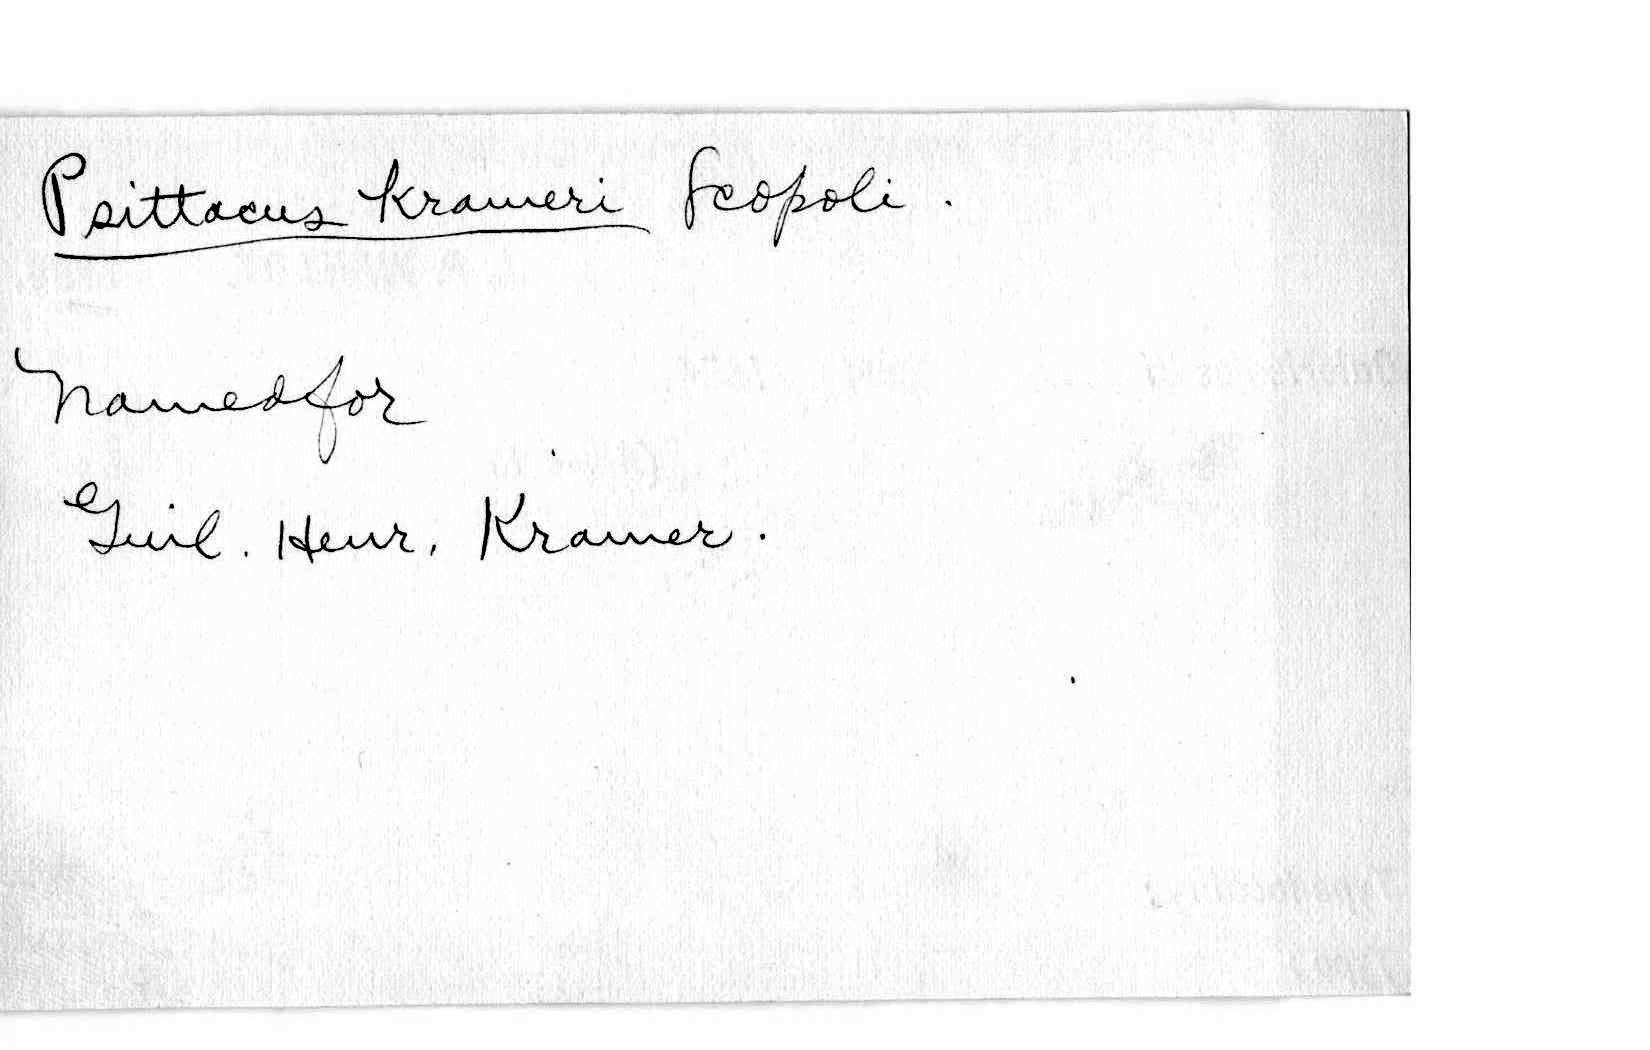 Psittacus Krameri Scopoli.
Named for
Guil. Henr. Kramer.